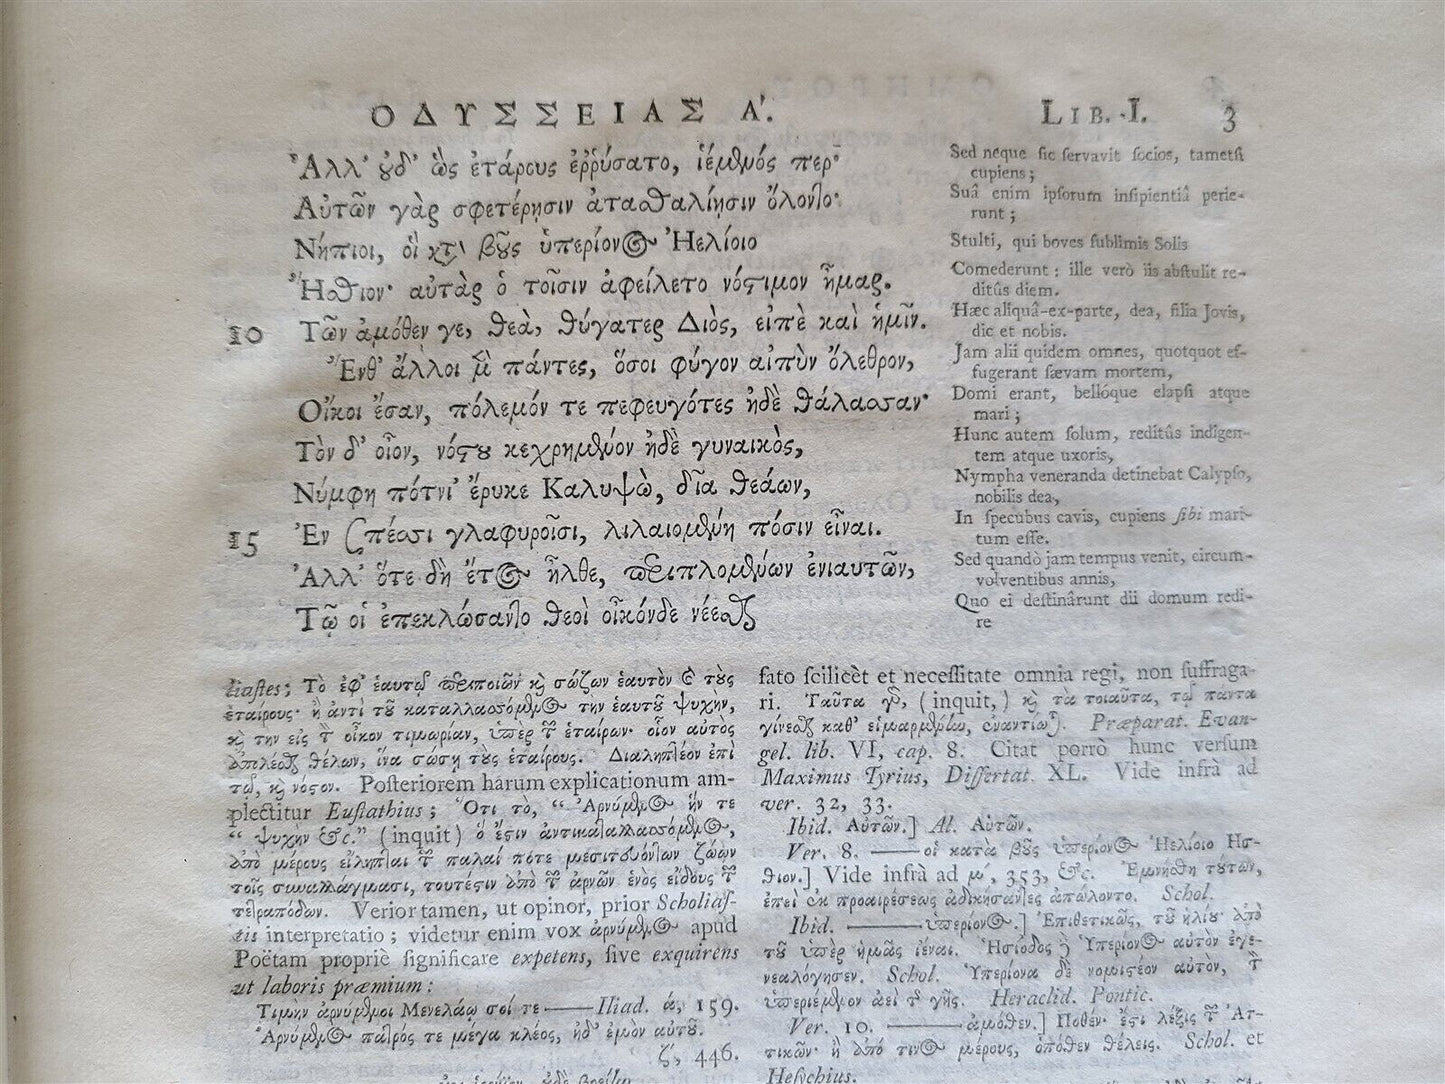 ΟΔΥΣΣΕΙΑΣ Α΄. LIB. I. 3
Ἀλλ' ἐδ' ὣς ἑτάρους ἐῤῥύσατο, ἱέμενός περ·
Αὐτῶν γὰρ σφετέρῃσιν ἀτασθαλίῃσιν ὄλοντο·
Νήπιοι, οἳ κτ̀ βοῦς ὑπερίονος Ἠελίοιο
Ἤσθιον· αὐτὰρ ὁ τοῖσιν ἀφείλετο νόστιμον ἦμαρ.
10 Τῶν ἀμόθεν γε, θεὰ, θύγατερ Διὸς, εἰπὲ καὶ ἡμῖν.
Ἔνθ' ἄλλοι μὲν πάντες, ὅσοι φύγον αἰπὺν ὄλεθρον,
Οἴκοι ἔσαν, πόλεμόν τε πεφευγότες ἠδὲ θάλασσαν·
Τὸν δ' οἶον, νόστου κεχρημένον ἠδὲ γυναικὸς,
Νύμφη πότνι' ἔρυκε Καλυψὼ, δῖα θεάων,
15 Ἐν σπέσσι γλαφυροῖσι, λιλαιομένη πόσιν εἶναι.
Ἀλλ' ὅτε δὴ ἔτος ἦλθε, περιπλομένων ἐνιαυτῶν,
Τῷ οἱ ἐπεκλώσαντο θεοὶ οἶκόνδε νέεσθαι
Sed neque sic servavit socios, tametsi
cupiens;
Suâ enim ipsorum insipientiâ perie-
runt;
Stulti, qui boves sublimis Solis
Comederunt: ille verò iis abstulit re-
ditûs diem.
Hæc aliquâ-ex-parte, dea, filia Jovis,
dic et nobis.
Jam alii quidem omnes, quotquot ef-
fugerant sævam mortem,
Domi erant, bellóque elapsi atque
mari;
Hunc autem solum, reditûs indigen-
tem atque uxoris,
Nympha veneranda detinebat Calypso,
nobilis dea,
In specubus cavis, cupiens sibi mari-
tum esse.
Sed quandò jam tempus venit, circum-
volventibus annis,
Quo ei destinârunt dii domum redi-
re
liastes; Τὸ ἐφ' ἑαυτῷ περιποιῶν καὶ σώζων ἑαυτὸν καὶ τοὺς
ἑταίρους· ἢ ἀντὶ τοῦ καταλλασσόμενος τὴν ἑαυτοῦ ψυχὴν,
καὶ τὴν εἰς τὸν οἶκον τιμωρίαν, ὑπὲρ τῶν ἑταίρων· οἷον αὐτὸς
ἀπολέσθαι θέλων, ἵνα σώσῃ τοὺς ἑταίρους. Διαληπτέον ἐπὶ
τῷ, καὶ νόστον. Posteriorem harum explicationum am-
plectitur Eustathius; Ὅτι τὸ, “ Ἀρνύμενος ἥν τε
“ ψυχὴν &c.” (inquit) ὅ ἐστιν ἀντικαταλλασσόμενος,
ἀπὸ μέρους εἴληπται τῶν παλαί ποτε μεσιτευόντων ζώων
τοῖς συναλλάγμασι, τουτέστιν ἀπὸ τῶν ἀρνῶν ἑνὸς εἴδους τῶν
τετραπόδων. Verior tamen, ut opinor, prior Scholias-
tis interpretatio; videtur enim vox ἀρνύμενος apud
Poëtam propriè significare expetens, sive exquirens
ut laboris præmium:
Τιμὴν ἀρνύμενοι Μενελάῳ σοί τε—Iliad. ά, 159.
Ἀρνύμενος πατρός τε μέγα κλέος, ἠδ' ἐμὸν αὐτοῦ.
ζ́, 446.
fato scilicèt et necessitate omnia regi, non suffraga-
ri. Ταῦτα γὰρ, (inquit,) καὶ τὰ τοιαῦτα, τῷ πάντα
γίνεσθαι καθ' εἱμαρμένην, ἐναντιωτ. Præparat. Evan-
gel. lib. VI, cap. 8. Citat porrò hunc versum
Maximus Tyrius, Dissertat. XL. Vide infrà ad
ver. 32, 33.
Ibid. Αὐτῶν.] Al. Αὑτῶν.
Ver. 8. —— οἳ κατὰ βοῦς ὑπερίονος Ἠελίοιο Ησ-
θιον.] Vide infrà ad μ΄, 353, &c. Ἐμνήσθη τούτων,
ἐπεὶ ἐκ προαιρέσεως ἀδικήσαντες ἀπώλοντο. Schol.
Ibid. —— ὑπερίονος.] Ἐπιθετικῶς, τοῦ ἡλίου ἀπὸ
τοῦ ὑπὲρ ἡμᾶς ἰέναι. Ἡσίοδος δὲ Ὑπερίονος αὐτὸν ἐγε-
νεαλόγησεν. Schol. Ὑπερίονα δὲ νομιστέον αὐτὸν, τὸν
ὑπεριέμενον ἀεὶ τῆς γῆς. Heraclid. Pontic.
Ver. 10. —— ἀμόθεν.] Ποθέν· ἔστι λέξις τῶν Ἀτ-
τικῶν· ἢ ἀπό τινος μέρους, ὁπόθεν θέλεις. Schol. et
Hesychius.